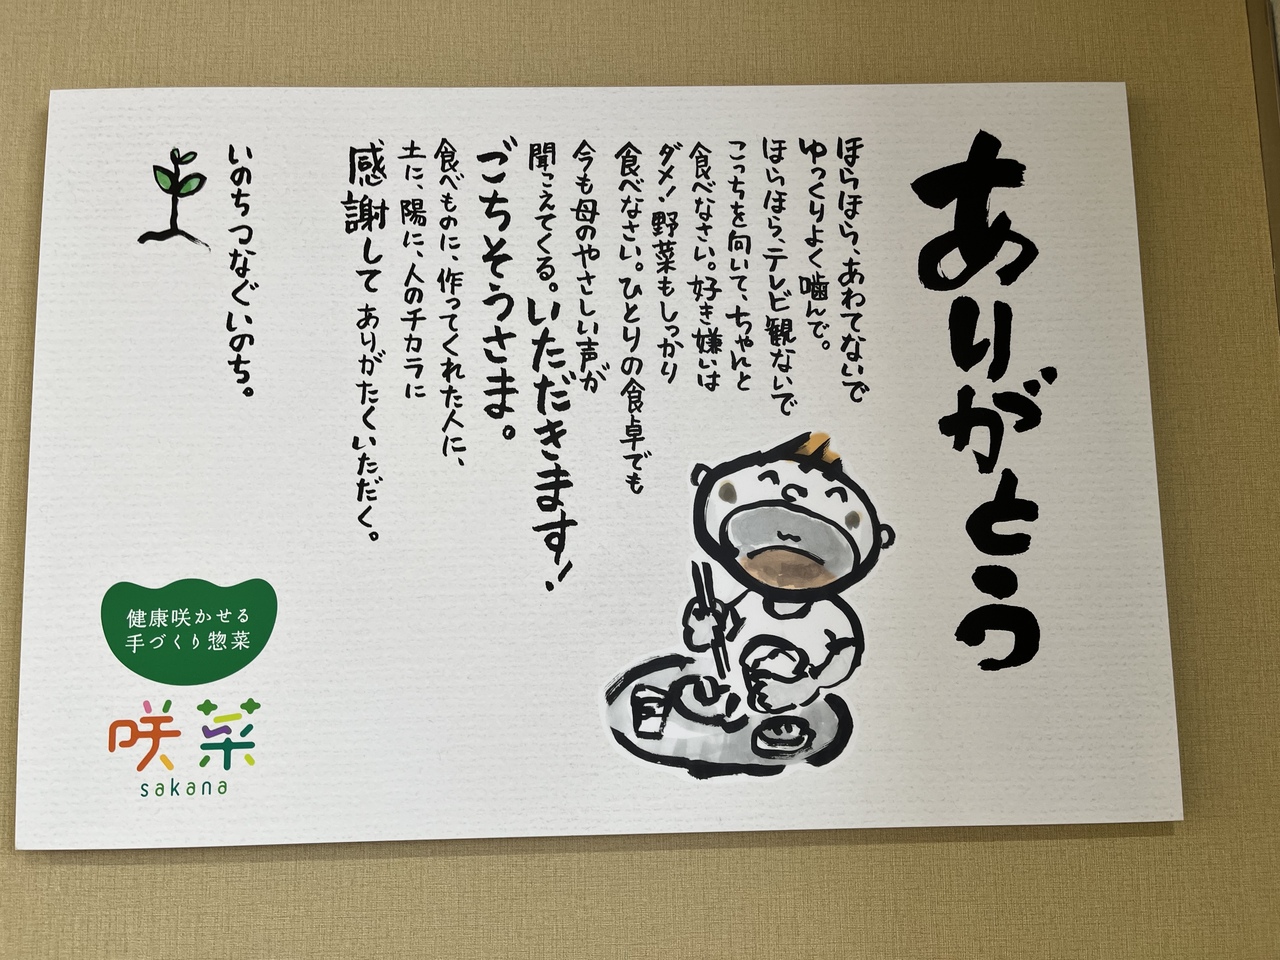 ありがとう
ほらほら、あわてないで
ゆっくりよく噛んで。
ほらほら、テレビ観ないで
こっちを向いて、ちゃんと
食べなさい。好き嫌いは
ダメ!野菜もしっかり
食べなさい。ひとりの食卓でも
今も母のやさしい声が
聞こえてくる。いただきます!
ごちそうさま。
食べものに、作ってくれた人に、
土に、陽に、人のチカラに
感謝して ありがたくいただく。
いのちつなぐいのち。
健康咲かせる
手づくり惣菜
咲菜
sakana